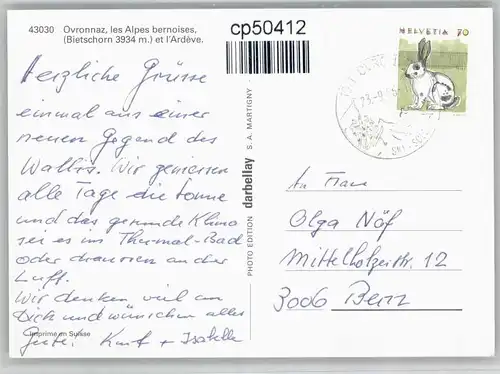 43030 Ovronnaz, les Alpes bernoises,
(Bietschorn 3934 m.) et l'Ardève.
cp50412
HELVETIA 70
Herzliche Grüsse
einmal aus einer
neuen Gegend des
Wallis. Wir geniessen
alle Tage die Sonne
und das gesunde Klima
sei es im Thermal-Bad
oder draussen an der
Luft.
Wir denken viel an
Dich und wünschen alles
Gute! Kurt + Isabella
Imprimé en Suisse
PHOTO EDITION darbellay S. A. MARTIGNY
An Frau
Olga Näf
Mittelholzerstr. 12
3006 Bern